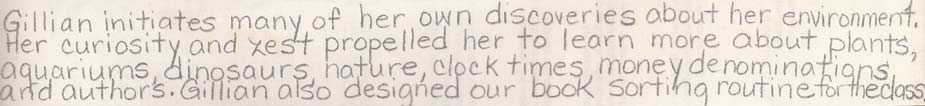 Gillian initiates many of her own discoveries about her environment.
Her curiosity and zest propelled her to learn more about plants,
aquariums, dinosaurs, nature, clock times, money denominations,
and authors. Gillian also designed our book sorting routine for the class